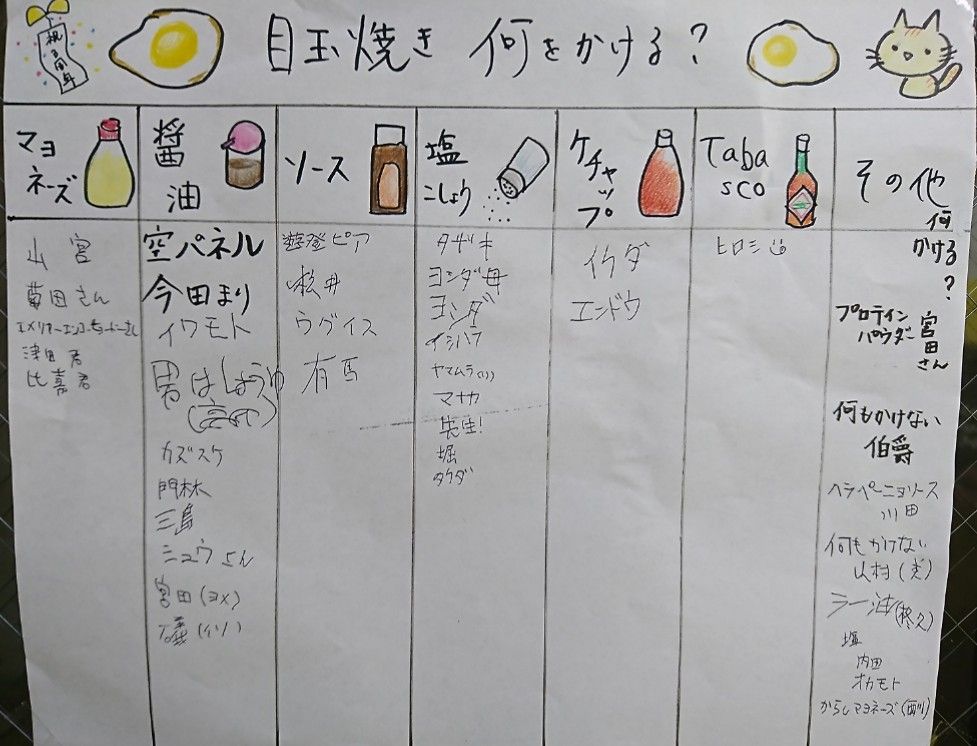 祝
周年
目玉焼き 何をかける？
マヨ
ネーズ
山宮
菊田さん
津田君
比嘉君
醤
油
空パネル
今田まり
イワモト
男はしょうゆ
カズスケ
門林
三島
ミュウさん
宮田(ヨメ)
礒(イソ)
ソース
遊登ピア
松井
ウグイス
有馬
塩
こしょう
タザキ
ヨシダ母
ヨシダ
イシハラ
ヤマムラ(ハハ)
マナカ
先生!
堀
タケダ
ケチャッ
プ
イケダ
エンドウ
Taba
sco
ヒロシ
その他
何
かける
？
プロテイン
パウダー
宮田
さん
何もかけない
伯爵
ハラペーニョソース
川田
何もかけない
山村
ラー油(柊久)
塩
内田
オカモト
からしマヨネーズ